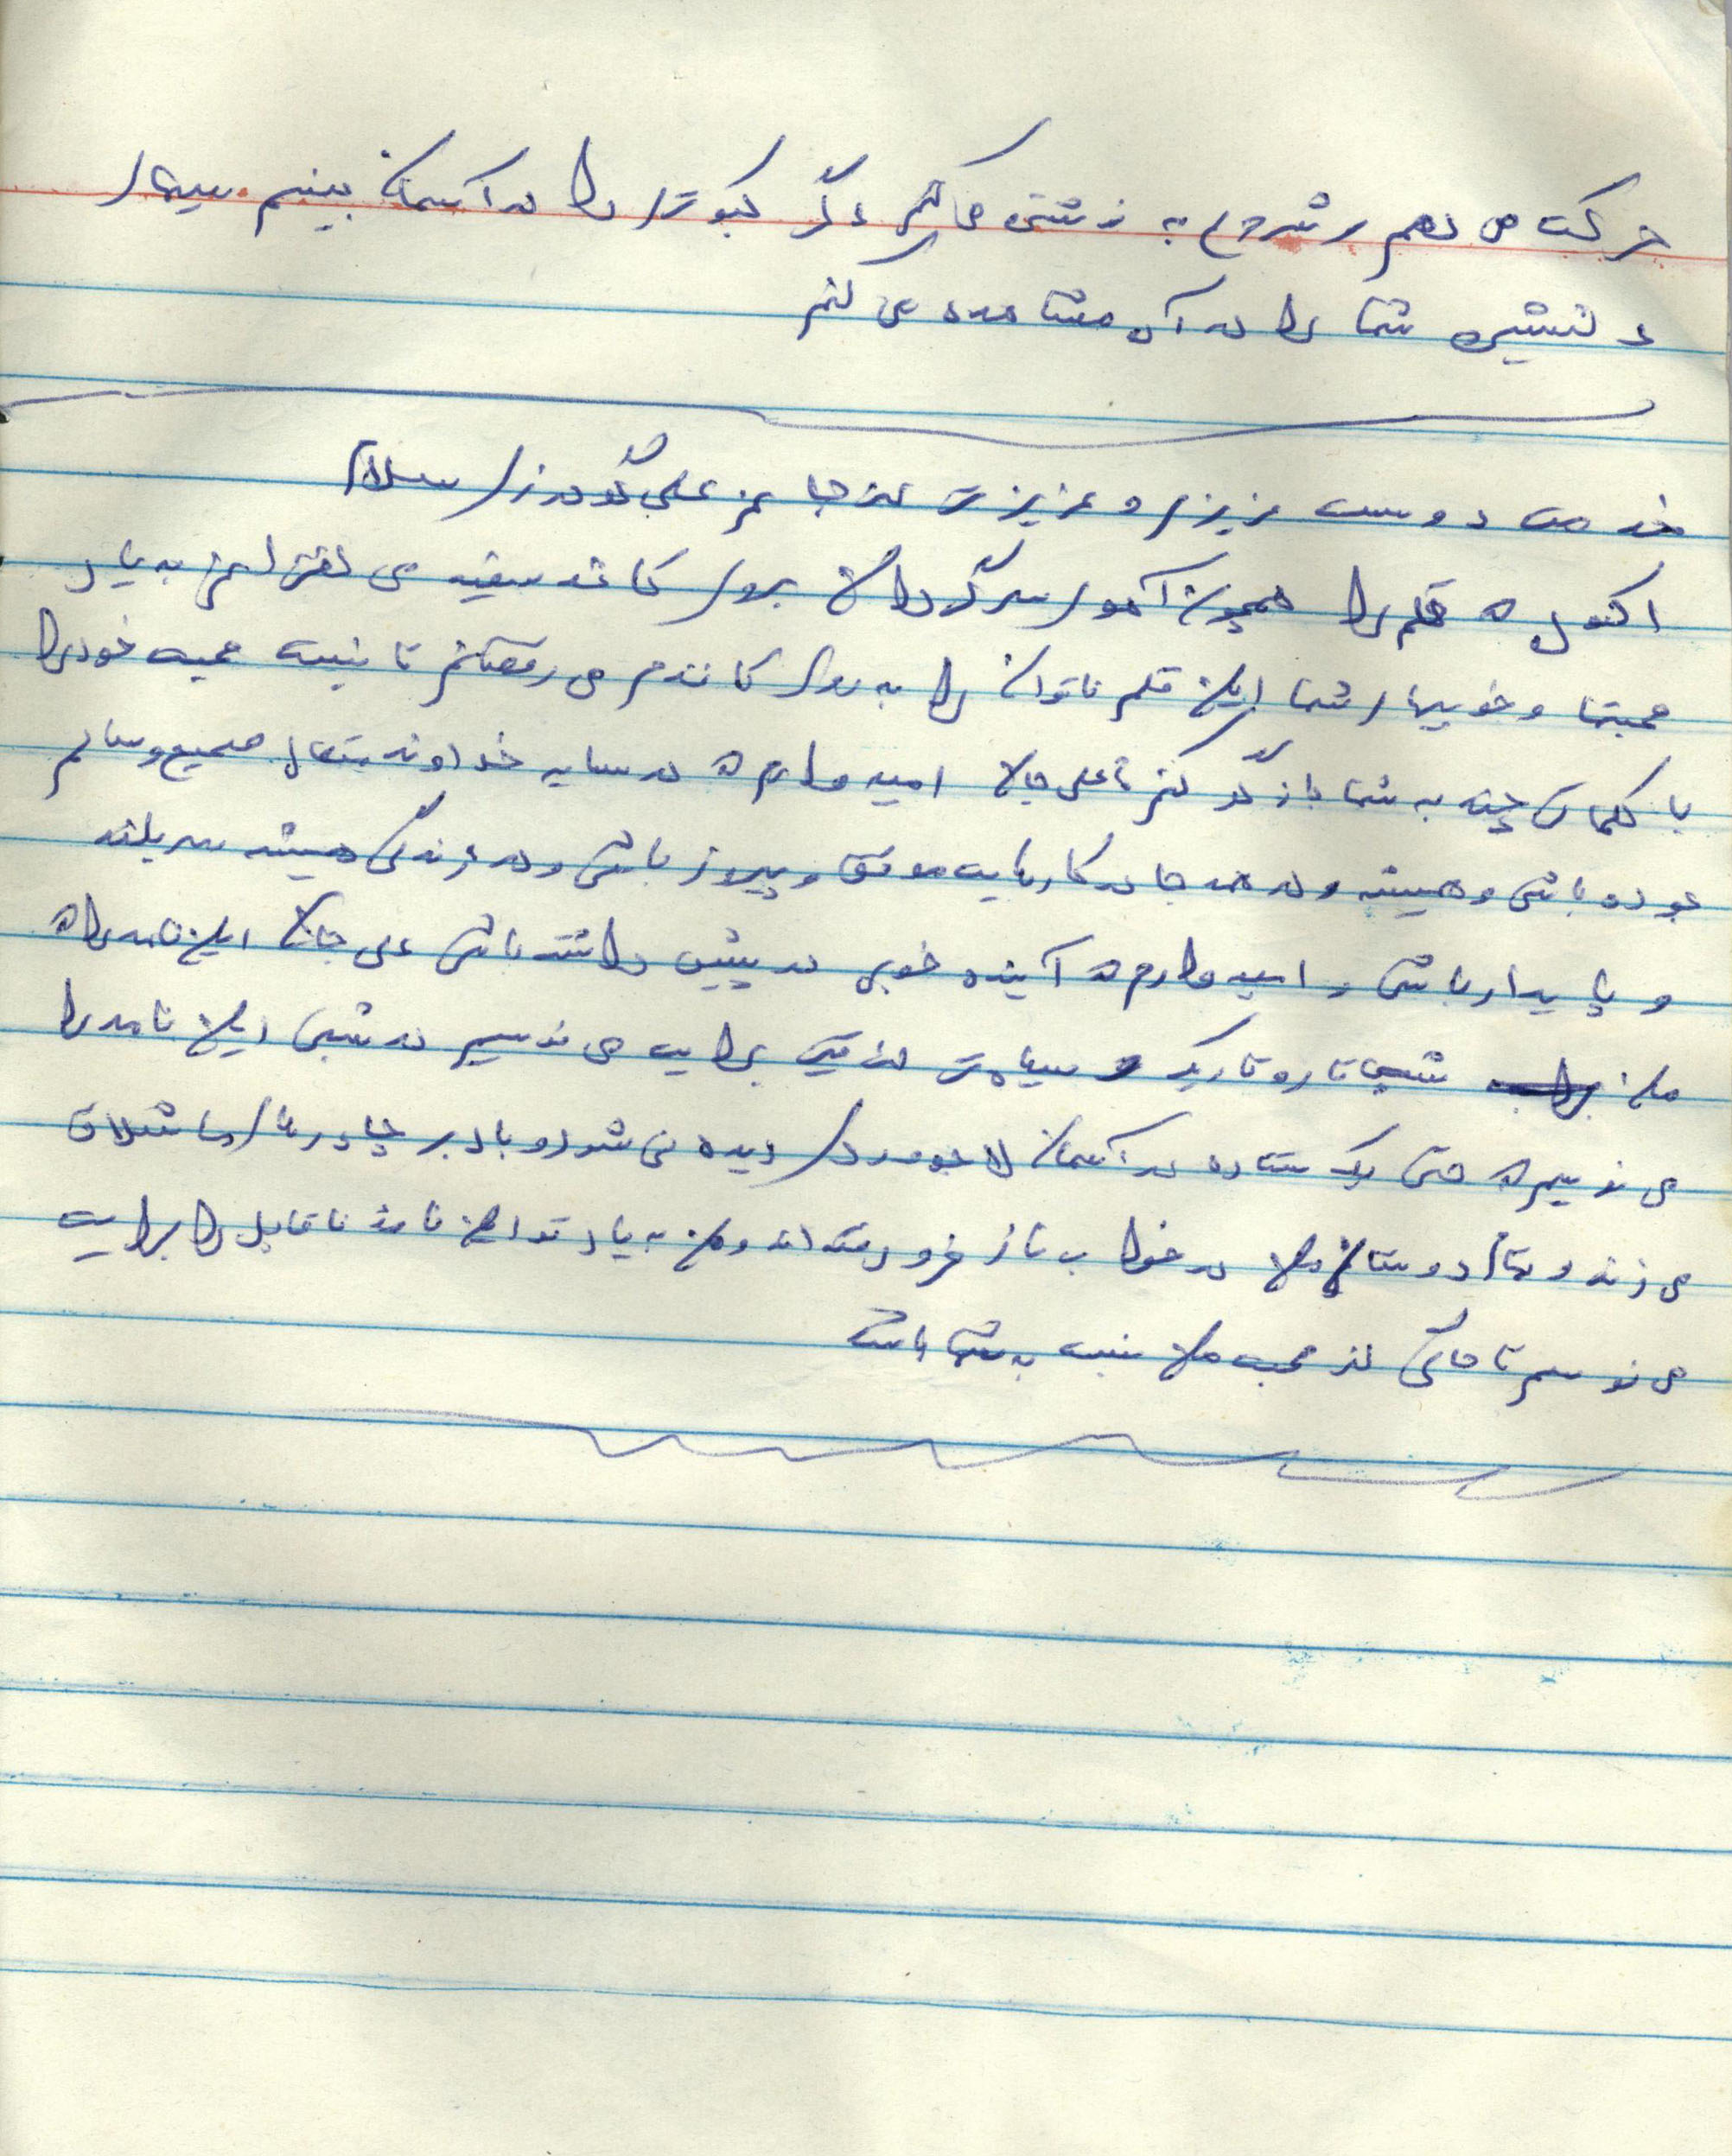 حرکت می دهم و شروع به نوشتن می کنم اگر کبوتری را در آسمان ببینم سیمای
دلنشین شما را در آن مشاهده می کنم
خدمت دوست عزیز و عزیزتر از جانم علی گودرزی سلام
اکنون که قلم را همچون آهوی سرگردان بروی کاغذ سفید می لغزانم به یاد
محبتها و خوبیهای شما این قلم ناتوان را به روی کاغذ می رقصانم تا نسبت محبت خود را
با کلمات چند به شما بازگو کنم علی جان امیدوارم که در سایه خداوند متعال صحیح و سالم
بوده باشی و همیشه و در همه جا در کارهایت موفق و پیروز باشی و در زندگی همیشه سربلند
و پایدار باشی و امیدوارم که آینده خوبی در پیش داشته باشی علی جان این نامه را که
من شبی تار و تاریک و سیاه تر از برایت می نویسم در شبی این نامه را
می نویسم که حتی یک ستاره در آسمان لاجوردی دیده نمی شود و باد بر چادرهای ما شلاق
می زند و تمام دوستان من در خواب ناز فرو رفته اند و من به یاد تو این نامه ناقابل را برایت
می نویسم تا حاکی از محبت من نسبت به شما باشد